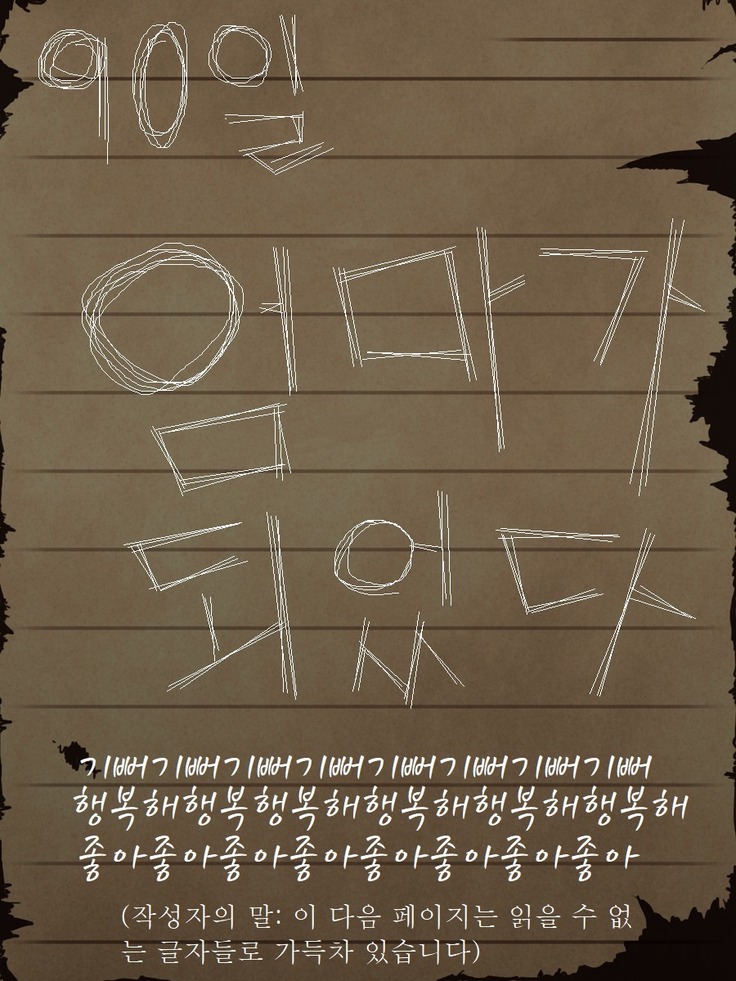 90일
엄마가
되었다
기뻐기뻐기뻐기뻐기뻐기뻐기뻐기뻐
행복해행복행복해행복해행복해행복해
좋아좋아좋아좋아좋아좋아좋아좋아
(작성자의 말: 이 다음 페이지는 읽을 수 없
는 글자들로 가득차 있습니다)